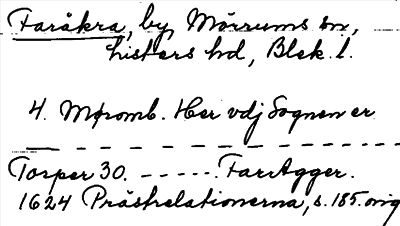 Faråkra, by, Mörrums sn,
Listers hd, Blek. l.
4. Møromb. Her vdj Sognen er
Torper 30. - - - - - - FarAgger.
1624 Prästrelationerna, s. 185. orig